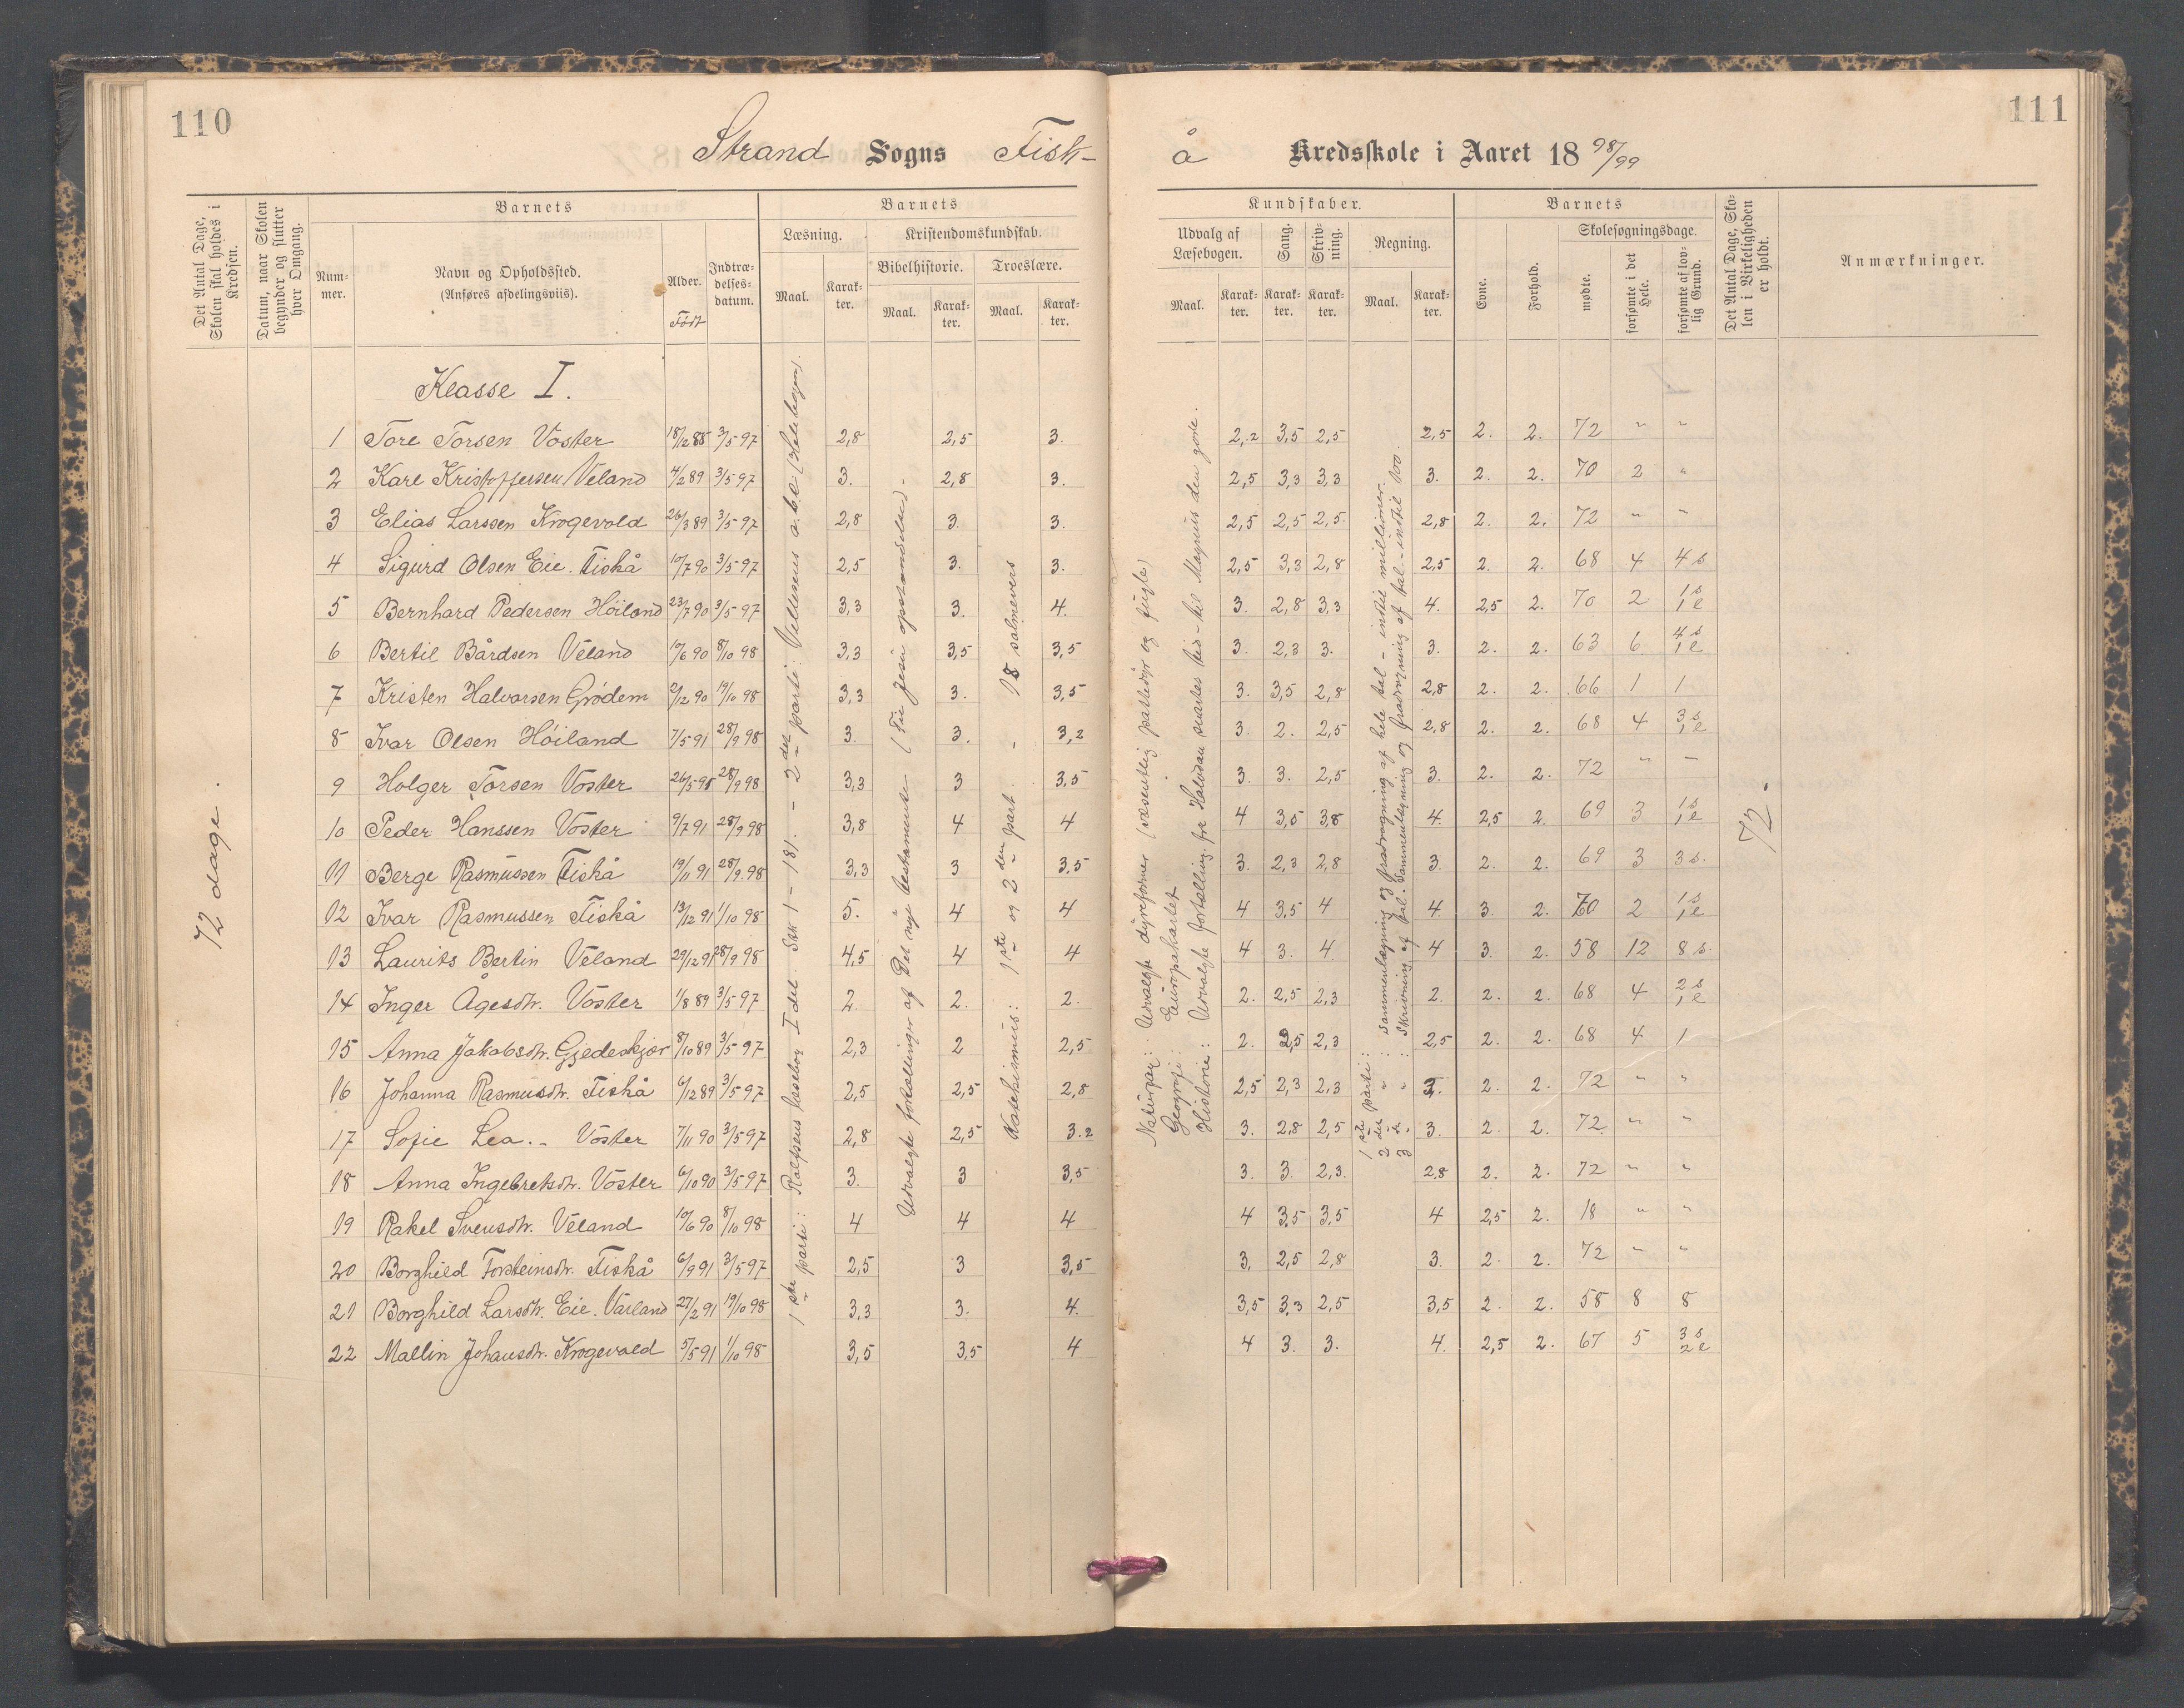 110
111
Strand Sogns Fisk-
å Kredsskole i Aaret 18 98/99
Det Antal Dage, Skolen skal holdes i Kredsen.
Datum, naar Skolen begynder og slutter hver Omgang.
Barnets
Num-
mer.
Navn og Opholdssted.
(Anføres afdelingsviis).
Alder.
Født
Indtræ-
delses-
datum.
Barnets
Læsning.
Maal.
Karak-
ter.
Kristendomskundskab.
Bibelhistorie.
Maal.
Karak-
ter.
Troeslære.
Maal.
Karak-
ter.
Kundskaber.
Udvalg af
Læsebogen.
Maal.
Karak-
ter.
Sang.
Karak-
ter.
Skriv-
ning.
Karak-
ter.
Regning.
Maal.
Karak-
ter.
Barnets
Evne.
Forhold.
Skolesøgningsdage.
mødte.
forsømte i det Hele.
forsømte af lov-
lig Grund.
Det Antal Dage, Sko-
len i Virkeligheden
er holdt.
Anmærkninger.
72 dage.
Klasse I.
1 Tore Torsen Voster 18/12 88 3/5 97 2,8 2,5 3. 2,2 3,5 2,5 2,5 2. 2. 72 " "
2 Karl Kristoffersen Veland 4/2 89 3/5 97 3. 2,8 3. 2,5 3,3 3,3 3. 2. 2. 70 2 "
3 Elias Larssen Krogevold 26/3 89 3/5 97 2,8 3. 3. 2,5 2,5 2,5. 2,8 2. 2. 72 " "
4 Sigurd Olsen Eie. Fiskå 10/7 90 3/5 97 2,5 3. 3. 2,5 3,3 2,8 2,5 2. 2. 68 4 4 s
5 Bernhard Pedersen Höiland 23/7 90 3/5 97 3,3 3. 4. 3. 2,8 3,3 4. 2,5 2. 70 2 1 s 1 l
6 Bertil Bårdsen Veland 10/6 90 8/10 98 3,3 3,5 3,5 3. 2,3 3. 3. 2. 2. 63 6 4 s 1 l
7 Kristen Halvorsen Grödem 2/12 90 19/10 98 3,3 3. 3,5 3. 3,5 2,8 2,8 2. 2. 66 1 1
8 Ivar Olsen Höiland 7/5 91 28/9 98 3. 3. 3,2 3. 2. 2,5 2,8 2. 2. 68 4 3 s 1 l
9 Holger Torsen Voster 26/5 91 28/9 98 3,3 3 3,5 3. 3. 2,5 3. 2. 2. 72 " "
10 Peder Hanssen Voster 9/7 91 28/9 98 3,8 4 4 4 3,5 3,8 4. 2,5 2. 69 3 1 s 1 l
11 Berge Rasmussen Fiskå 19/11 91 28/9 98 3,3 3 3,5 3. 2,3 2,8 3. 2. 2. 69 3 3 s.
12 Ivar Rasmussen Fiskå 13/12 91 1/10 98 5. 4 4 4 3,5 4 4. 3. 2. 70 2 1 s 1 l
13 Laurits Bertin Veland 29/12 91 28/9 98 4,5 4 4 4 3. 4. 4 3. 2. 58 12 8 s.
14 Inger Ågesdtr. Voster 1/8 89 3/5 97 2. 2. 2. 2. 2,5 2,3 2. 2. 2. 68 4 2 s 1 l
15 Anna Jakobsdtr. Gjedeskjær 8/10 89 3/5 97 2,3 2 2,5 2. 2,5 2,3 2,5 2. 2. 68 4 1
16 Johanna Rasmusdtr. Fiskå 6/12 89 3/5 97 2,5 2,5 2,8 2,5 2,3 2,3 3. 2. 2. 72 " "
17 Sofie Lea. - Voster 7/11 90 3/5 97 2,8 2,5 3.2 3. 2,8 2,5 3. 2. 2. 72. " "
18 Anna Ingebretsdtr. Voster 6/10 90 3/5 97 3. 3 3,5 3. 3. 2,3. 2,8 2. 2. 72 " "
19 Rakel Svensdtr. Veland 10/6 90 8/10 98 4 4 4 4 3,5 3,5 4 2,5 2. 18 " "
20 Borghild Torsteinsdtr. Fiskå 6/9 91 3/5 97 2,5 3 3,5 3. 2,5 2,8 3. 2. 2. 72 " "
21 Borghild Larsdtr. Eie. Varland 27/2 91 19/10 98 3,3 3. 4. 3,5 3,3 2,5 3,5 2. 2. 58 8 8
22 Mallin Johansdtr. Krogevold 5/5 91 1/10 98 3,5 3,5 4 4 3. 3. 4. 2,5 2. 67 5 3 s 2 l
1ste parti: Rolfsens læsebog I del. Stk 1 - 181. - 2det parti: Vellesens a.b.c. (Hele bogen).
Udvalgte fortællinger af Det nye testamente (Til Jesu opstandelse)-
Katekismus: 1ste og 2den part. - 18 salmevers
Naturfag: Udvalgte dyreformer (væsentlig pattedyr og fugle)
Geografi: Europakartet
Historie: Udvalgte fortælling. fra Halvdan svartes tid - til Magnus den gode.
1ste parti: Sammenlægning og fradragning af hele tal - indtil millioner.
2det " : Sammenlægning og fradragning af tal - indtil 100.
3dr. " : Skrivning af tal.
72.